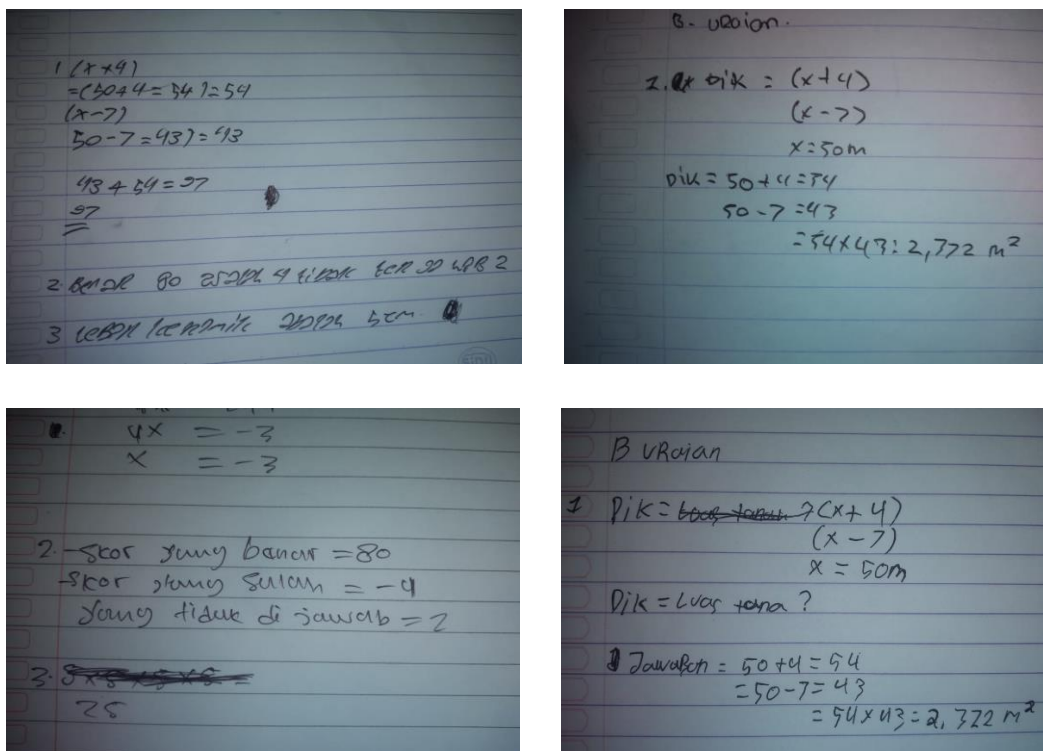 1 (x+4)
=(50+4=54)=54
(x-7)
50-7=43)=43
43+54=97
97
2. 80 4 tidak 2
3 keramik 5cm.
B. URaian.
1. Dik = (x+4)
(x-7)
x=50m
Dik = 50+4=54
50-7=43
=54x43=2,322 m²
4x = -3
x = -3
2. -skor yang banar = 80
-skor yang salah = -4
yang tidak di jawab = 2
3.
25
B URaian
1 Dik = (x+4)
(x-7)
x = 50m
Dik = Luas tana ?
Jawaban = 50+4=54
=50-7=43
=54x43=2,322 m²